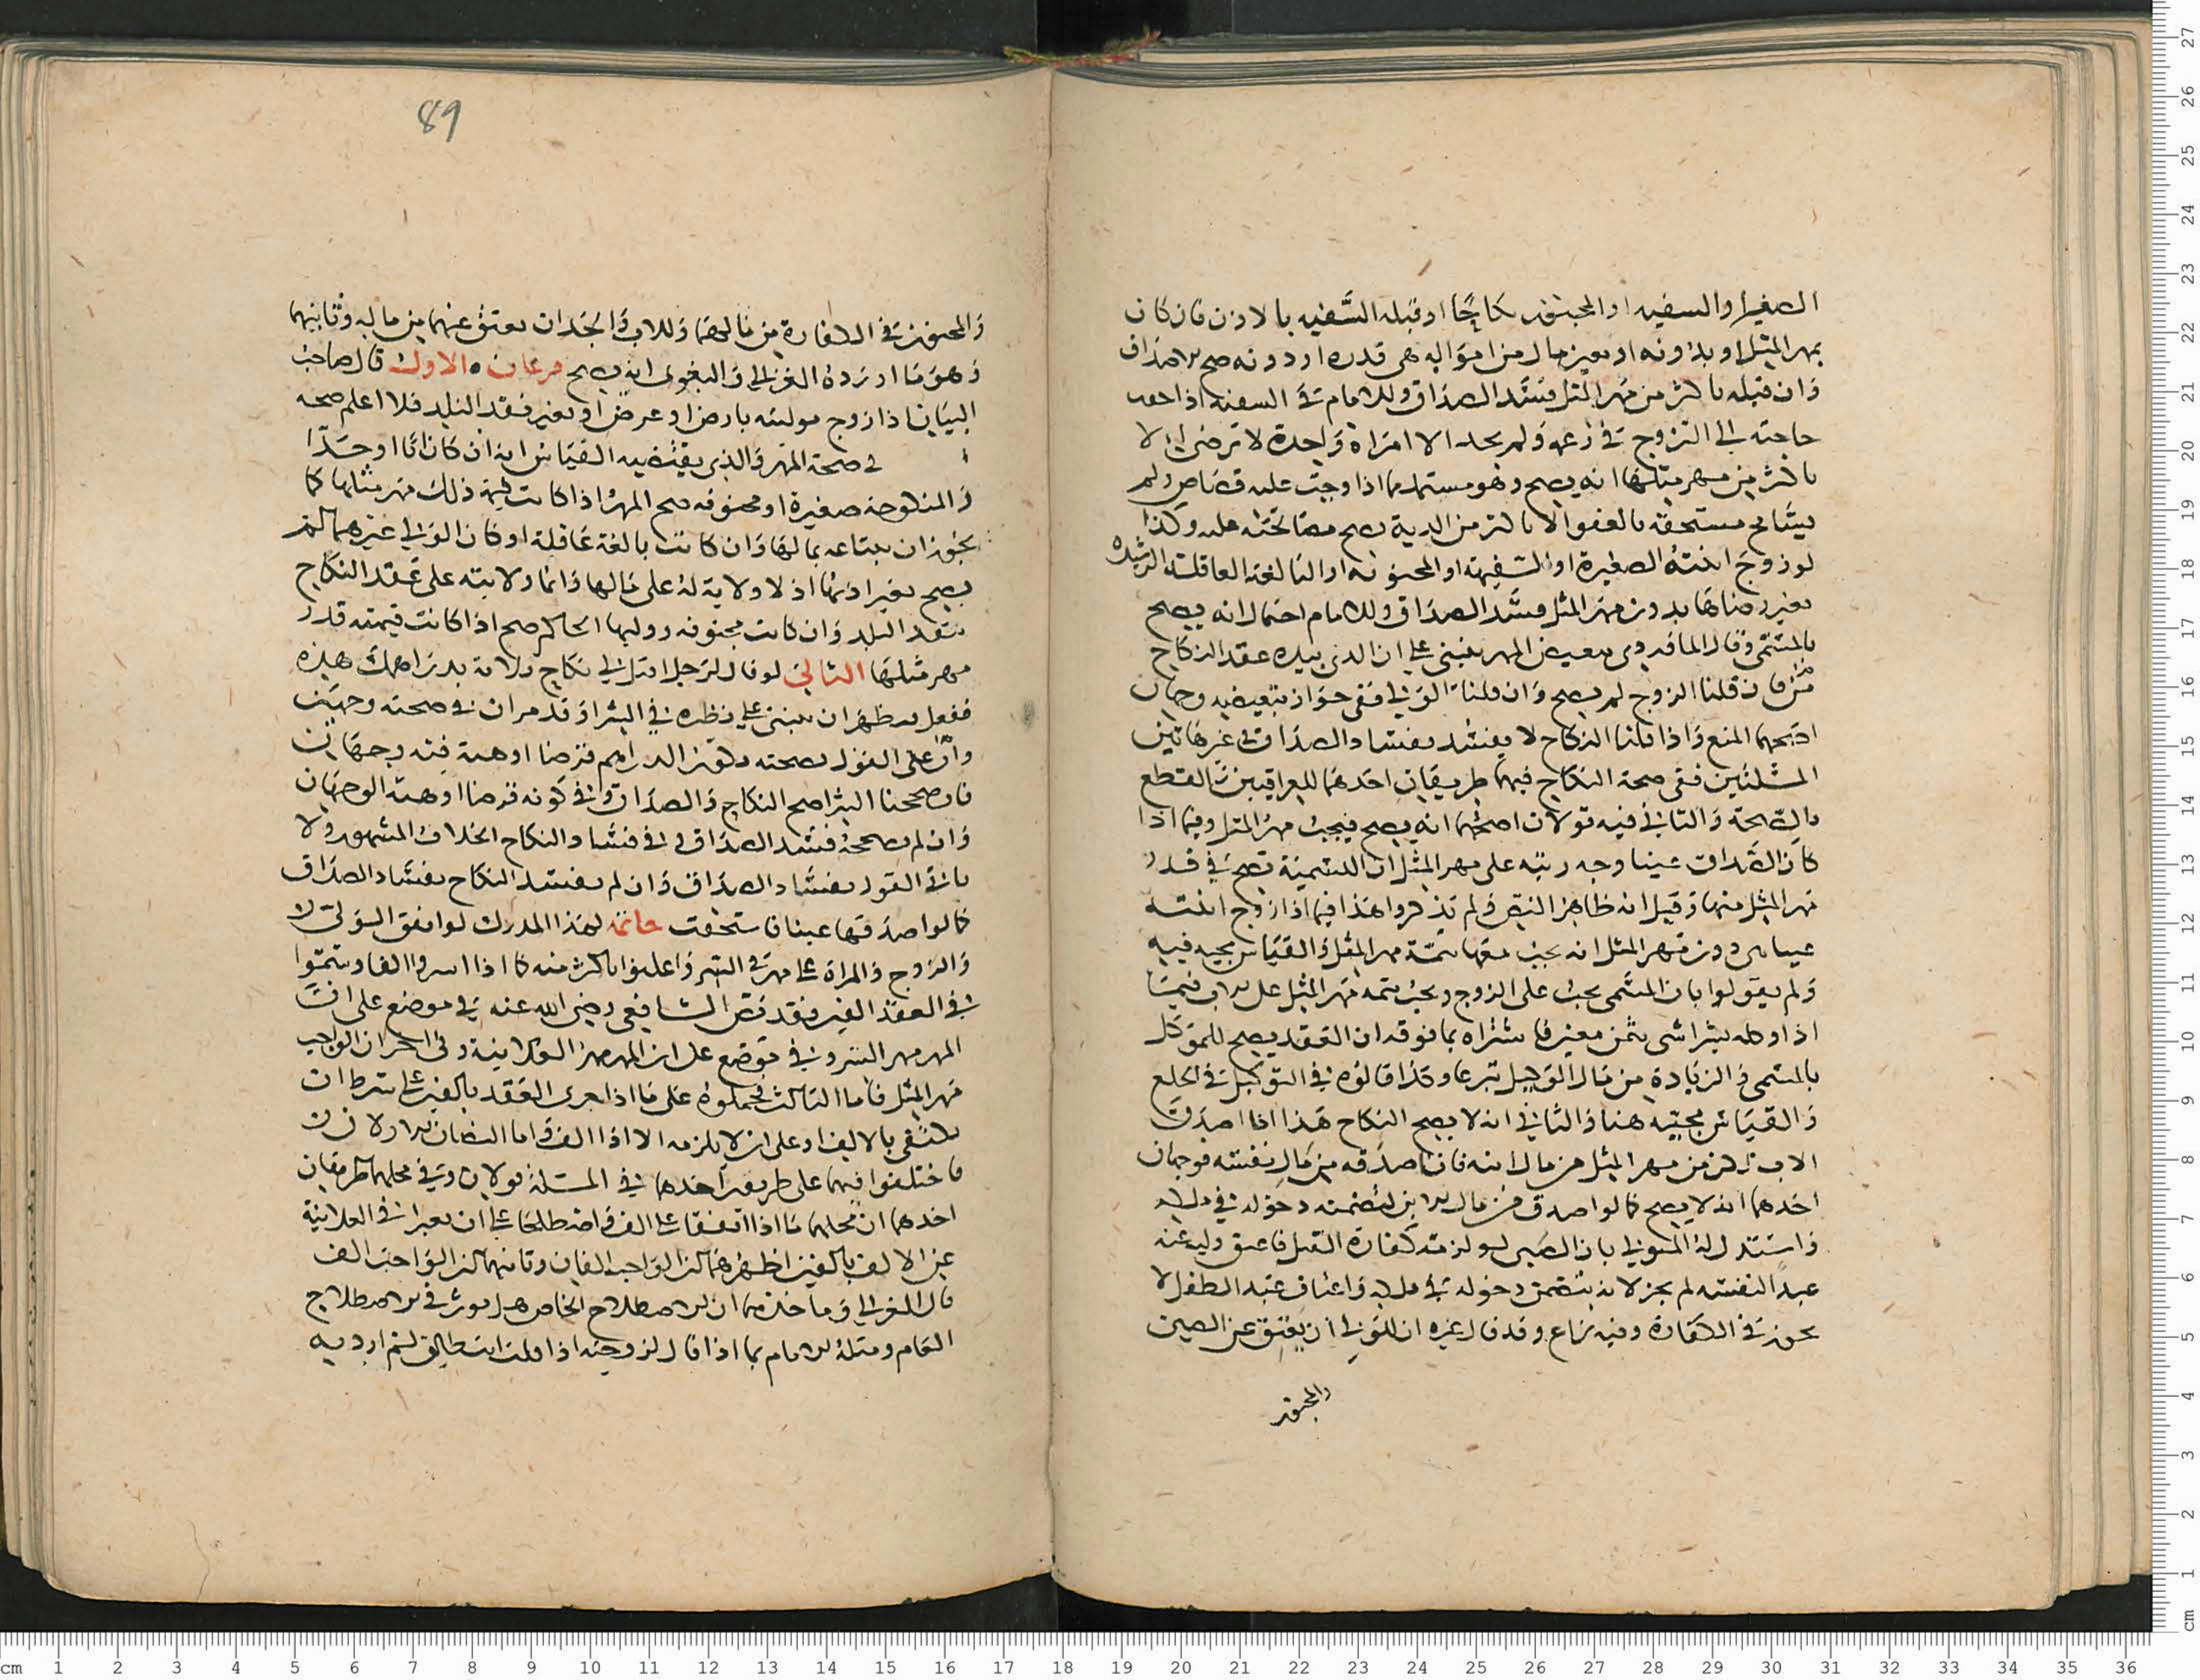 الصغير والسفيه او المجنون نكاحا او قبله السفيه بالاذن فان كان
بمهر المثل او بدونه او بعين مال من امواله هي قدره او دونه صح الاصداق
وان قبله باكثر من مهر المثل فسد الصداق وللامام في السفيه اذا
حاجته الى التزوج في زعمه ولم يجد الا امراة واحدة لا ترضى الا
باكثر من مهر مثلها انه يصح وهو مستمد مما اذا وجب عليه قصاص ولم
يسامح مستحقه بالعفو الا باكثر من الدية يصح مصالحته عليه وكذا
لو زوج ابنته الصغيرة او السفيهة او المجنونة او البالغة العاقلة الرشيدة
بغير رضاها بدون مهر المثل فسد الصداق وللامام احتمال انه يصح
بالمسمى وقال الماوردي تبعيض المهر ينبني على ان الذي بيده عقد النكاح
من فان قلنا الزوج لم يصح وان قلنا الولي ففي جواز تبعيضه وجهان
اصحهما المنع واذا قلنا النكاح لا يفسد بفساد الصداق في غير هاتين
المسئلتين ففي صحة النكاح فيهما طريقان احدهما للعراقيين القطع
بالصحة والثاني فيه قولان اصحهما انه يصح فيجب مهر المثل وفيما اذا
كان الصداق عينا وجه رتبه على مهر المثل ان التسمية تصح في قدر
مهر المثل منها وقيل انه ظاهر النص ولم يذكروا هذا فيما اذا زوج ابنته
دون مهر المثل انه يجب معها تتمة مهر المثل والقياس مجيه فيه
ولم يقولوا بان المسمى يجب على الزوج ويجب تتمه مهر المثل على الاب
اذا وكله بشرا شي بثمن معين فاشتراه بما فوقه ان العقد يصح للموكل
بالمسمى والزيادة من مال الوكيل تبرعا وكذا قالوه في التوكيل في الخلع
والقياس مجيئه هنا والثاني انه لا يصح النكاح هذا اذا اصدق
الاب اكثر من مهر المثل من مال ابنه فان اصدقه من مال نفسه فوجهان
احدهما انه لا يصح كما لو اصدق من مال الابن لتضمنه دخوله في ملكه
واستدل له المتولي بان الصبي لو لزمته كفارة القتل فاعتق وليه عنه
عبدا لنفسه لم يجز لانه يتضمن دخوله في ملكه واعتاق عبد الطفل لا
يجوز في الكفارة وفيه نزاع وقد قال غيره ان للولي ان يعتق عن الصبي
والمجنون
89
والمجنون في الكفارة من مالهما وللاب والجد ان يعتق عنهما من ماله وثانيهما
وهو ما اورده الغزالي والبغوي انه يصح فرعان الاول قال صاحب
البيان اذا زوج موليته بارض او عرض او بغير نقد البلد فلا اعلم صحه
في صحة المهر والذي يقتضيه القياس انه ان كان ابا او جدا
والمنكوحة صغيرة او مجنونه صح المهر اذا كانت قيمة ذلك مهر مثلها كما
يجوز ان يبتاعه بمالها وان كانت بالغة عاقلة او كان الولي غيرهما لم
يصح بغير اذنها اذ لا ولاية له على مالها وانما ولايته على عقد النكاح
بنقد البلد وان كانت مجنونه ووليها الحاكم صح اذا كانت قيمته قدر
مهر مثلها الثاني لو قال لرجل اقبل لي نكاح فلانة بدراهمك هذه
ففعل فيظهر ان ينبني على نظيره في الشرا وقد مر ان في صحته وجهين
وان على القول بصحته يكون الدراهم قرضا او هبة فيه وجهان
فان صححنا الشرا صح النكاح والصداق وفي كونه قرضا او هبة الوجهان
وان لم يصححه فسد الصداق وفي فساد النكاح الخلاف المشهور ولا
ياتي القول بفساد الصداق وان لم يفسد النكاح بفساد الصداق
كما لو اصدقها عينا فاستحقت خاتمة لهذا المدرك لو اتفق الولي
والزوج والمراة على مهر في السر واعلنوا باكثر منه كما اذا اسروا الفا وسموا
في العقد الفين فقد نص الشافعي رضي الله عنه في موضع على ان
المهر مهر السر وفي موضع على ان المهر مهر العلانية وفي اخر ان الواجب
مهر المثل فاما الثالث فحملوه على ما اذا جرى العقد بالفين على شرط ان
يكتفى بالالف او على ان لا يلزمه الا اذا الف واما النصان الاولان
فاختلفوا فيهما على طريقين احدهما في المسئلة قولان وفي محلهما طريقان
احدهما ان محلهما ما اذا اتفقا على الف واصطلحا على ان يعبرا في العلانية
عن الالف بالفين اظهرهما ان الواجب الفان وثانيهما ان الواجب الف
قال الغزالي وماخذهما ان الاصطلاح الخاص هل يوثر في الاصطلاح
العام ومثله الامام بما اذا قال لزوجته اذا قلت انت طالق لم ارد به